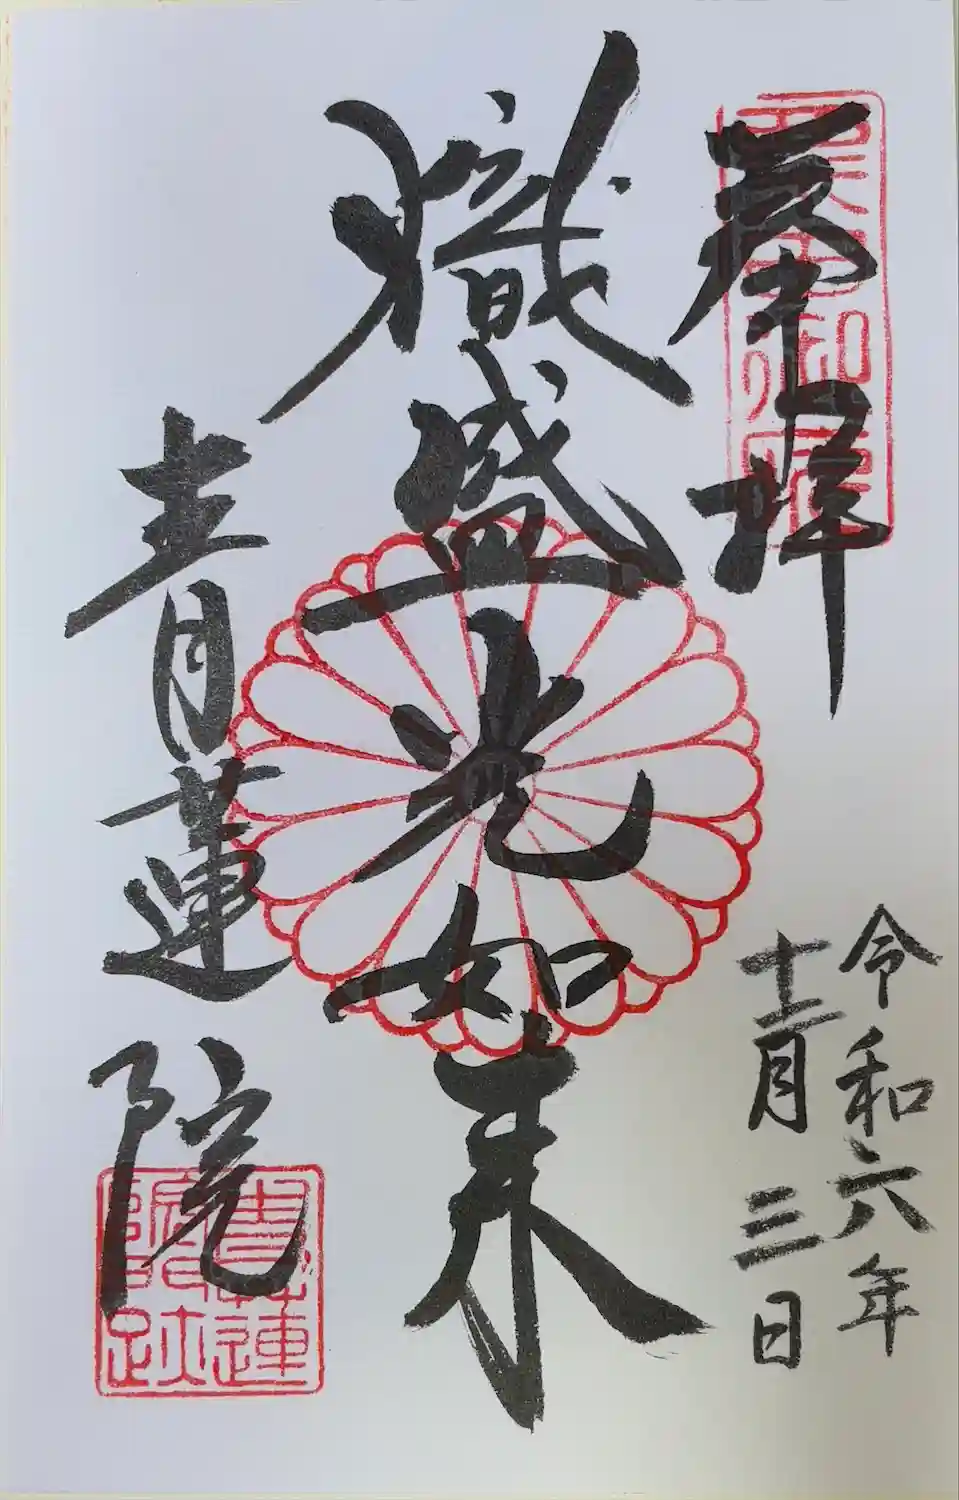 奉拝
令和六年
十二月三日
熾盛光如来
青蓮院
青蓮
院門跡